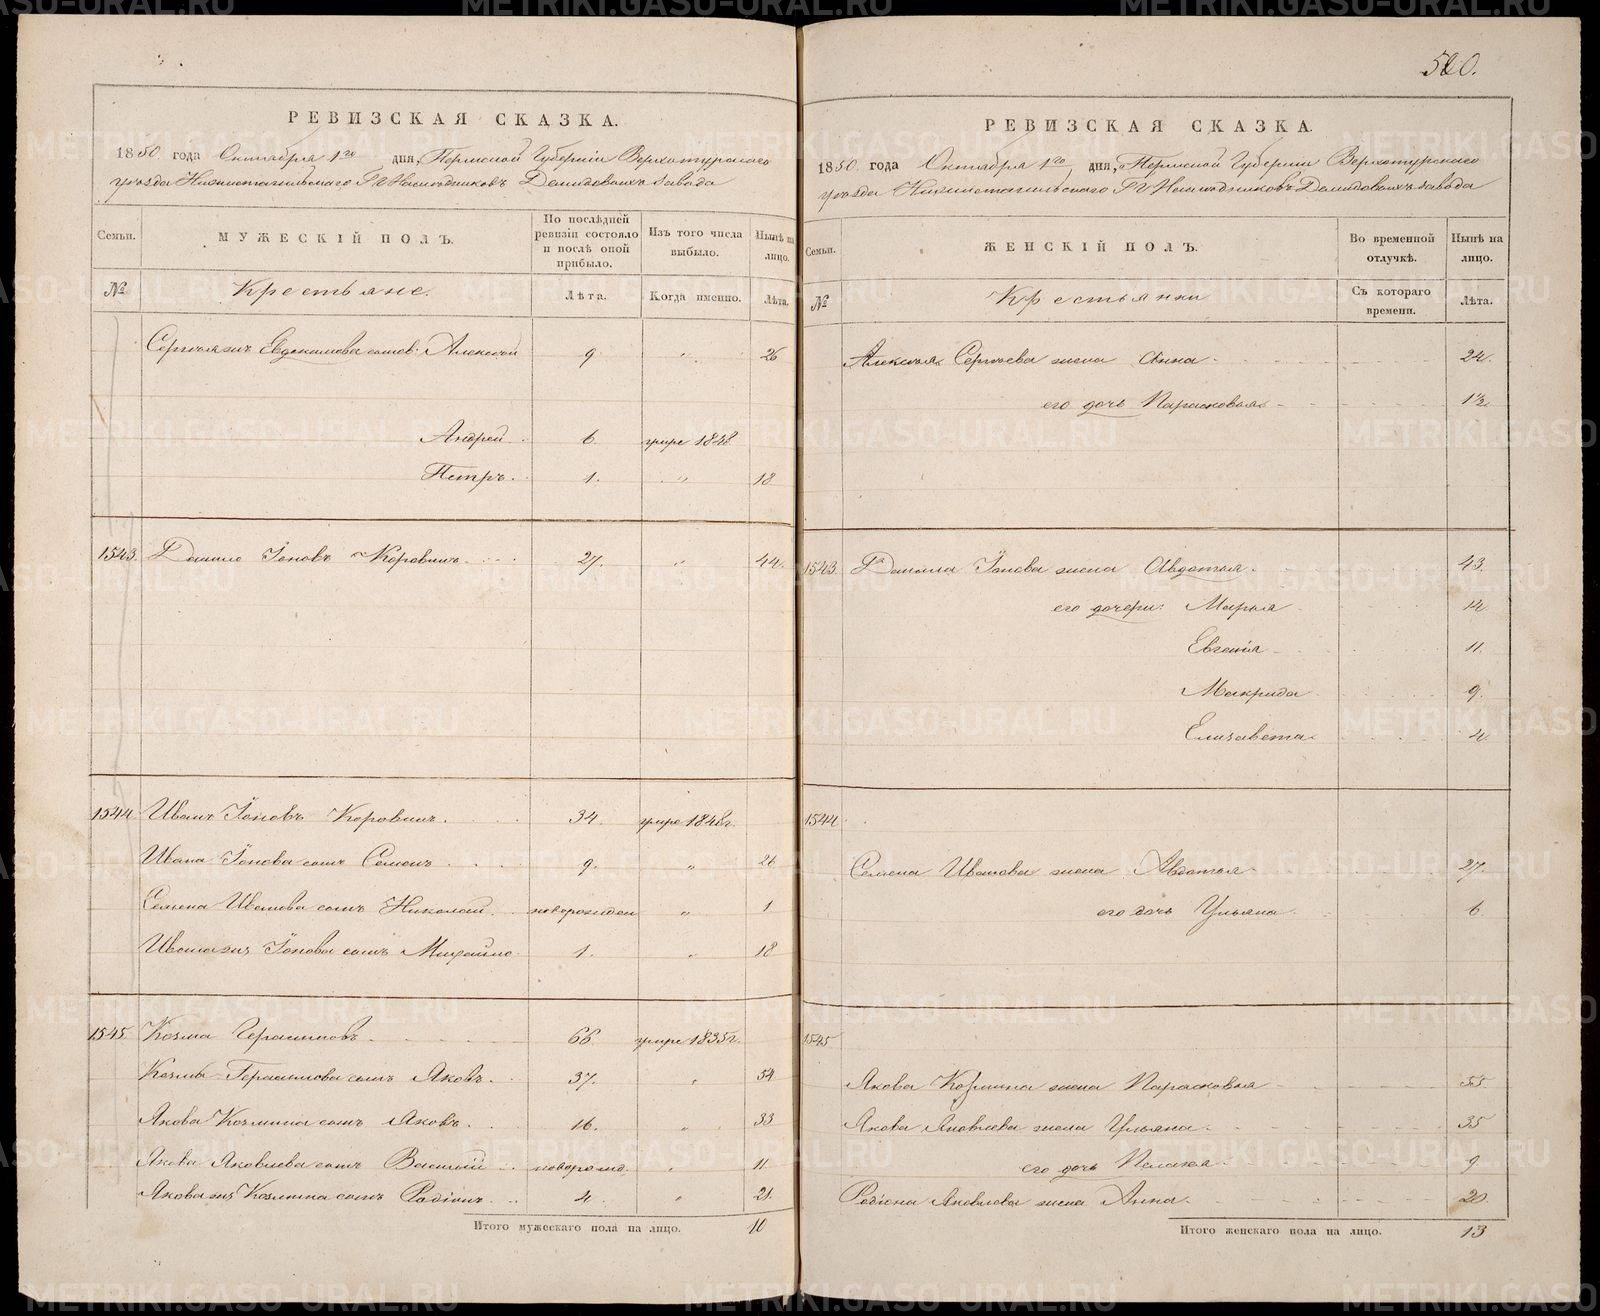 РЕВИЗСКАЯ СКАЗКА.
1850 года Октября 1го дня, Пермской Губернiи Верхотурскаго
уѣзда Нижнетагильскаго Гг Наслѣдниковъ Демидовыхъ завода
Семьи. МУЖЕСКІЙ ПОЛЪ. По послѣдней ревизіи состояло и послѣ оной прибыло. Изъ того числа выбыло. Нынѣ на лицо.
№ Крестьяне. Лѣта. Когда именно. Лѣта.
Сергѣя Евдокимова Алексѣй 9 " 26
Андрей 6 умре 1848
Петръ. 1. " 18
1543. Данило Іоновъ Коровинъ 27. " 44.
1544 Иванъ Іоновъ Коровинъ. 34. умре 1848г.
Ивана Іонова сынъ Семенъ 9. " 26
Семена Иванова сынъ Николай новорожден " 1
Ивана Іонова сынъ Михайло 1. " 18
1545 Козма Герасимовъ 66 умре 1835г.
Козмы Герасимова сынъ Яковъ. 37. " 54
Якова Козмина сынъ Яковъ. 16. " 33
Якова Яковлева сынъ Василій новорожд. " 11
Якова Козмина сынъ Родіонъ 4. " 21.
Итого мужескаго пола на лицо. 10
500.
РЕВИЗСКАЯ СКАЗКА.
1850 года Октября 1го дня, Пермской Губерніи Верхотурскаго
уѣзда Нижнетагильскаго Гг Наслѣдниковъ Демидовыхъ завода
Семьи. ЖЕНСКІЙ ПОЛЪ. Во временной отлучкѣ. Нынѣ на лицо.
№ Крестьянки Съ котораго времени. Лѣта.
Алексѣя Сергѣева жена Анна 24.
его дочь Парасковья 1½
1543 Данила Іонова жена Авдотья 43.
его дочери: Марья 14
Евгенія 11.
Макрида 9.
Елизавета 4
1544
Семена Иванова жена Авдотья 27.
его дочь Ульяна 6
1545
Якова Козмина жена Парасковья 55.
Якова Яковлева жена Ульяна 35
его дочь Пелагея 9
Родіона Яковлева жена Анна 20
Итого женскаго пола на лицо. 13
METRIKI.GASO-URAL.RU